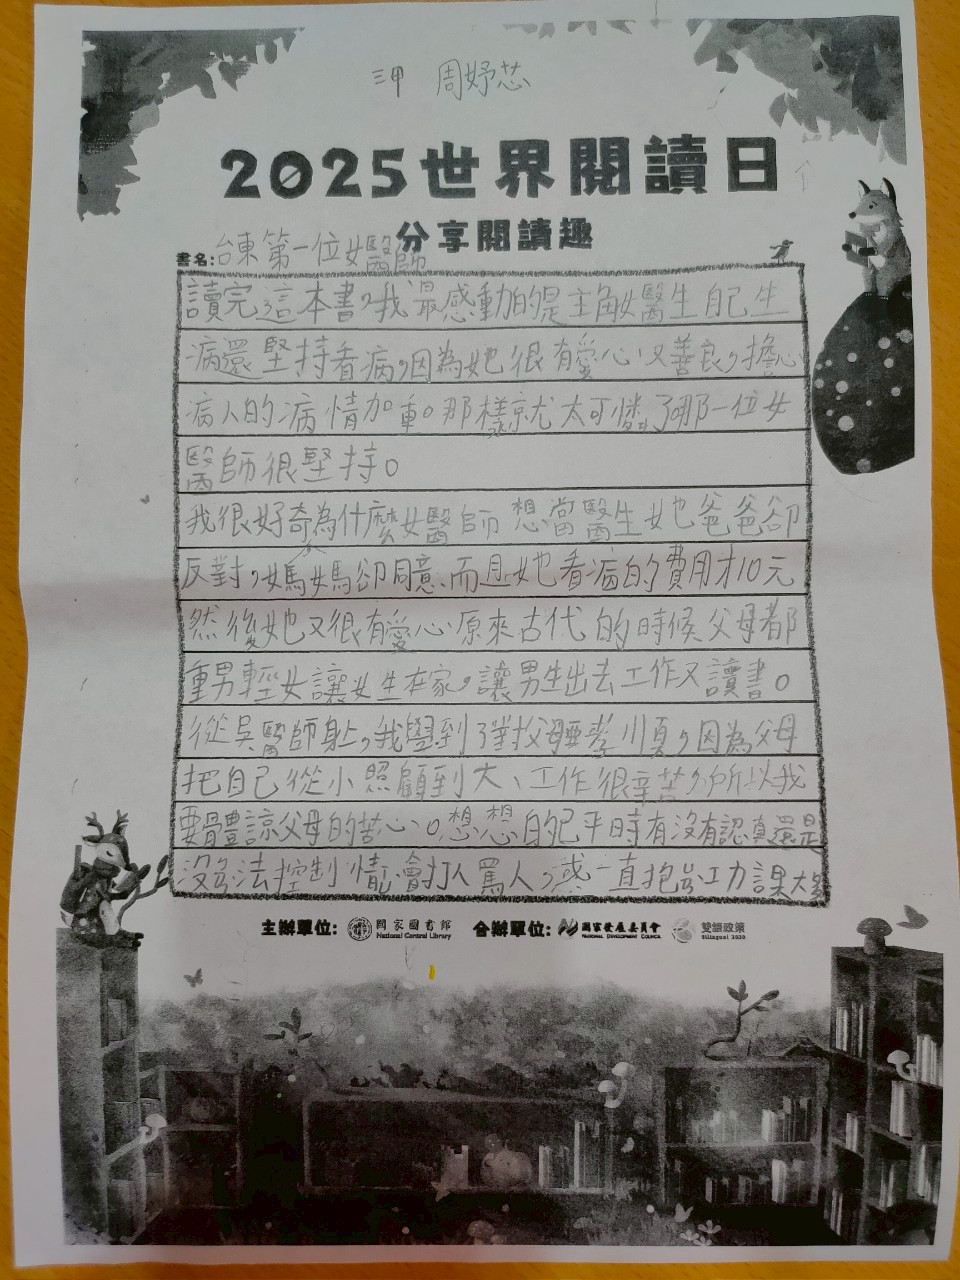 三甲 周妤芯
2025世界閱讀日
分享閱讀趣
書名:台東第一位女醫師
讀完這本書,我最感動的是主角女醫生自己生
病還堅持看病,因為她很有愛心又善良,擔心
病人的病情加重。那樣就太可憐了那一位女
醫師很堅持。
我很好奇為什麼女醫師想當醫生她爸爸卻
反對,媽媽卻同意、而且她看病的費用才10元
然後她又很有愛心原來古代的時候父母都
重男輕女讓女生在家,讓男生出去工作又讀書。
從吳醫師身上,我學到了對父母要孝順,因為父母
把自己從小照顧到大、工作很辛苦,所以我
要體諒父母的苦心。想想自己平時有沒有認真還是
沒辦法控制情 會打人罵人,或一直抱怨功課太多
主辦單位: 國家圖書館 National Central Library 合辦單位: 國家發展委員會 NATIONAL DEVELOPMENT COUNCIL 雙語政策 Bilingual 2030